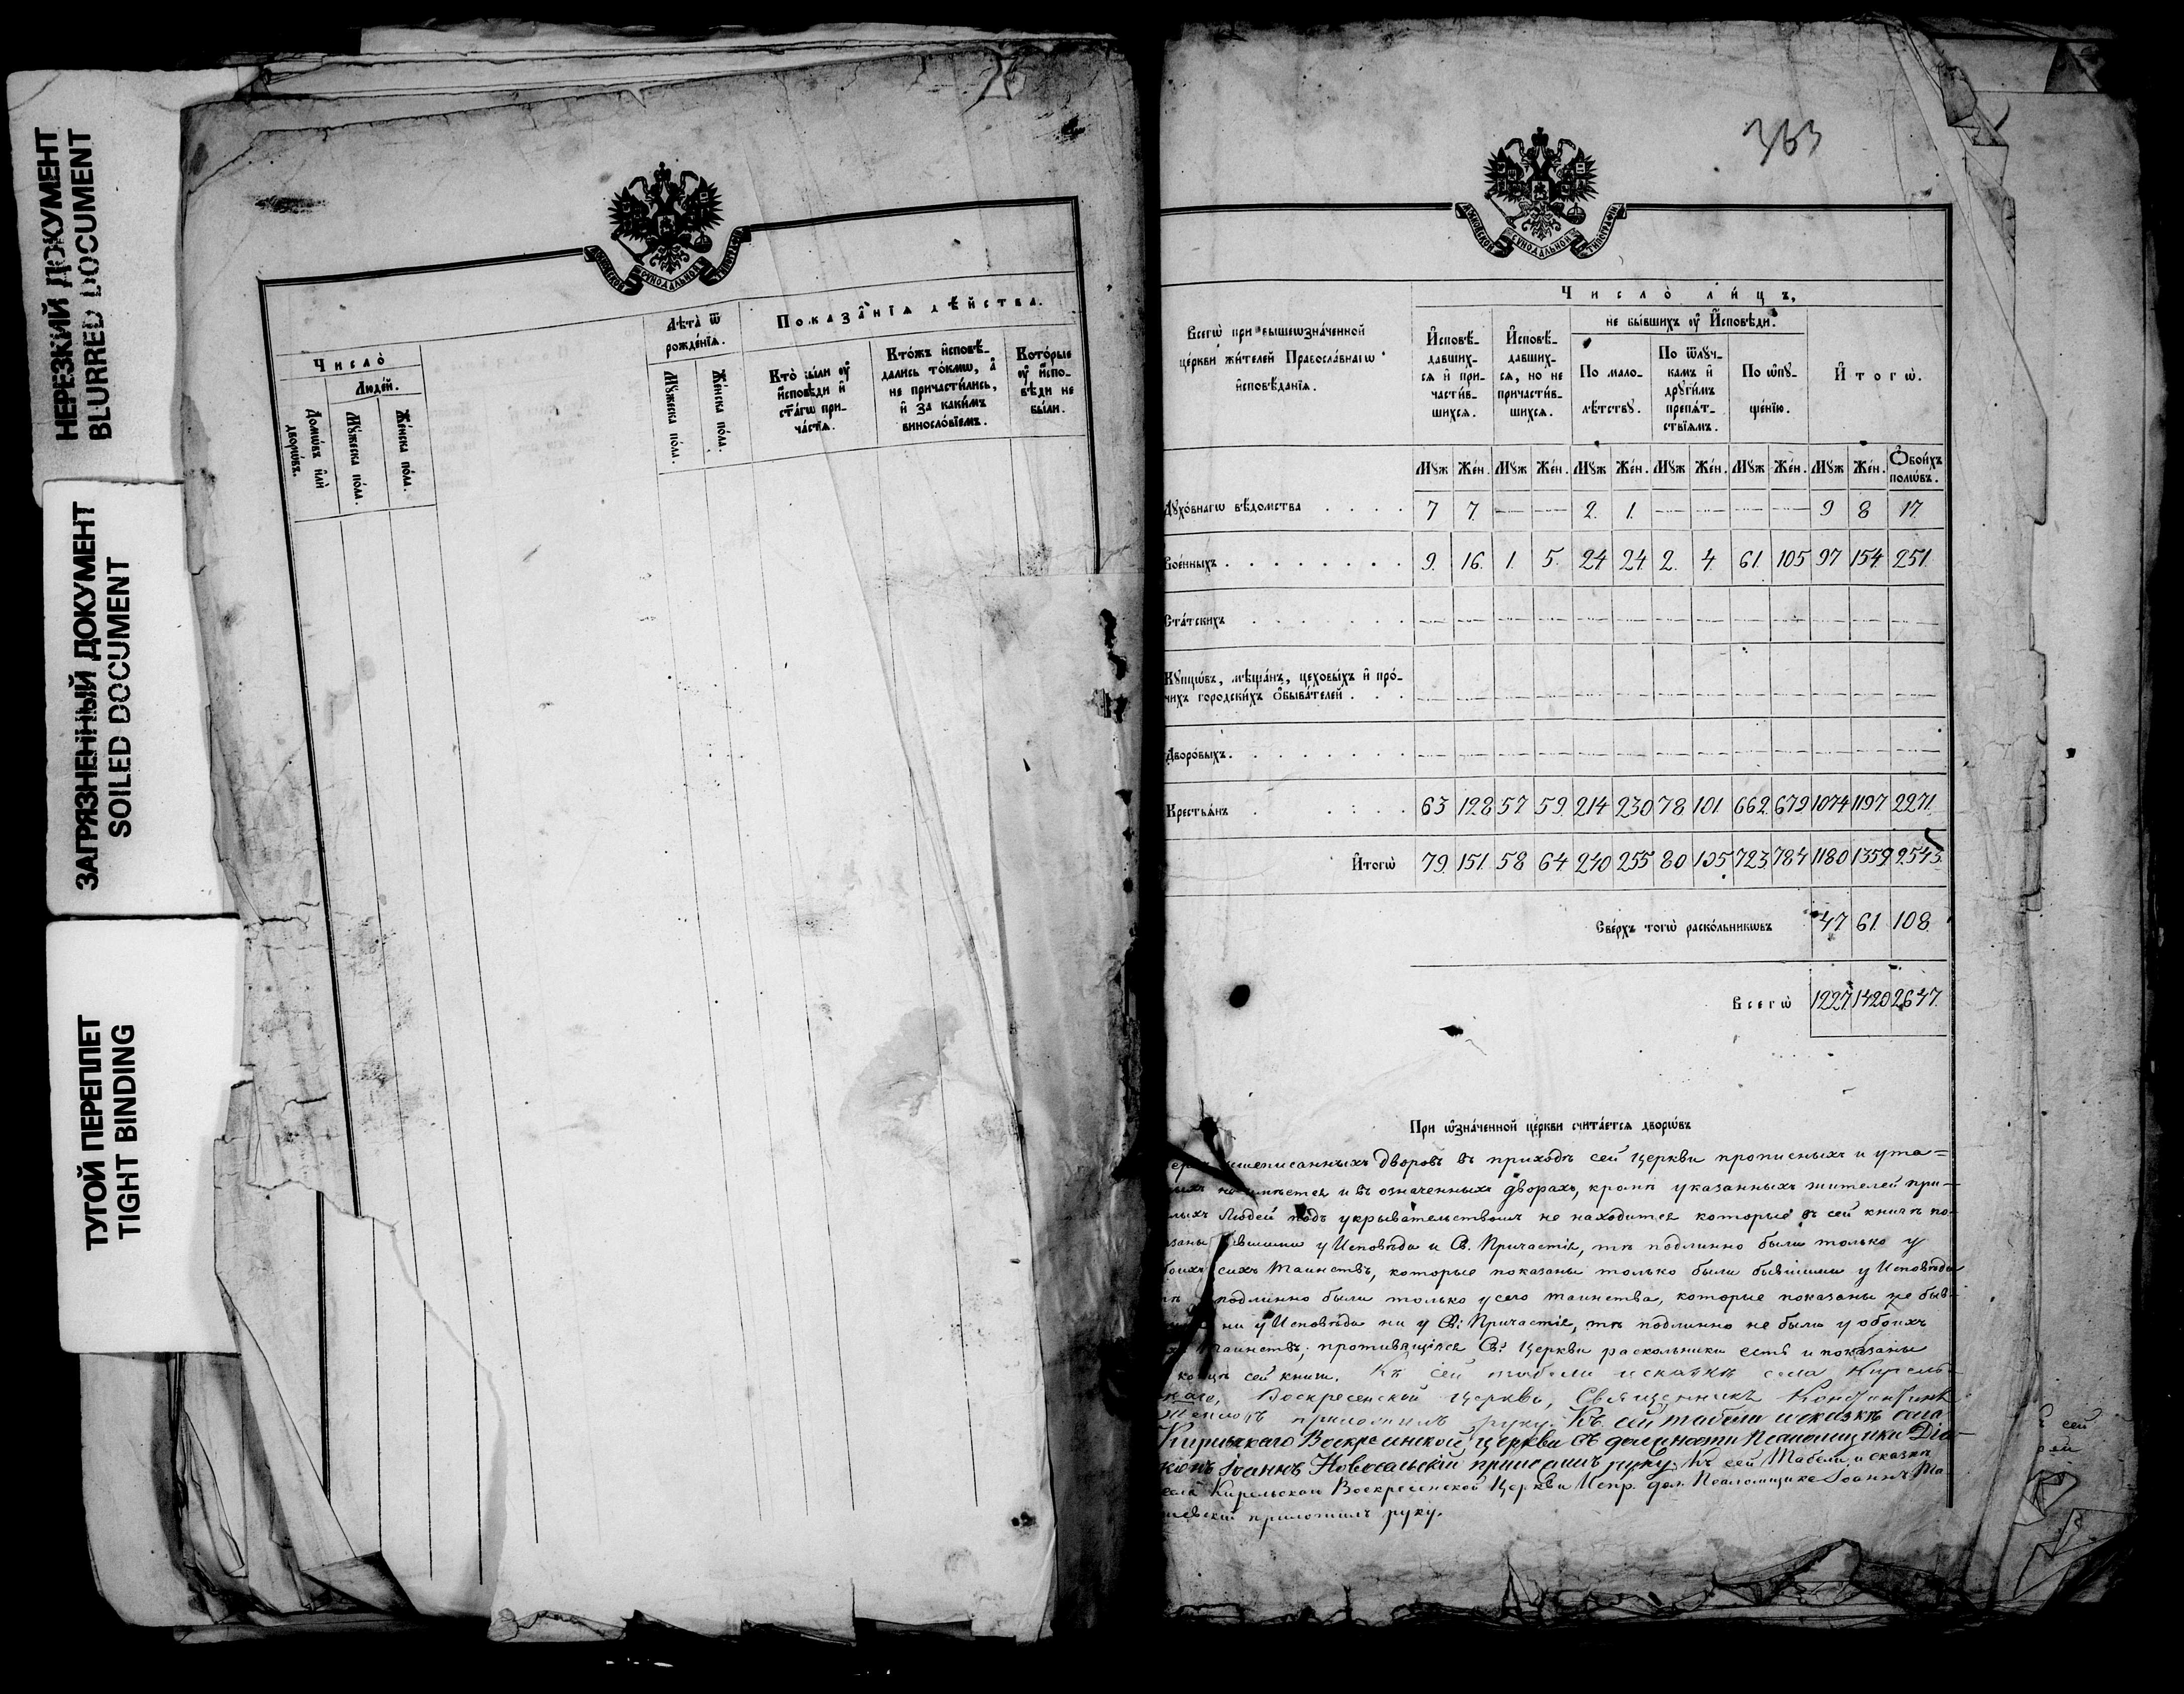 НЕРЕЗКИЙ ДОКУМЕНТ
BLURRED DOCUMENT
ЗАГРЯЗНЕННЫЙ ДОКУМЕНТ
SOILED DOCUMENT
ТУГОЙ ПЕРЕПЛЕТ
TIGHT BINDING
МОСКОВСКОЙ СУНОДАЛЬНОЙ ТИПОГРАФІИ
Число̀
Люде́й.
Домѡ́въ и҆лѝ дворѡ́въ.
Мꙋ́жеска по́ла.
Же́нска по́ла.
Лѣта̀ ѿ рожде́нїѧ.
Мꙋ́жеска по́ла.
Же́нска по́ла.
Показа̑нїѧ дѣ́йства.
Кто̀ бы́ли ᲂу҆
и҆сповѣди и҆
ст҃а́гѡ при-
ча́стїѧ.
Кто́жъ и҆сповѣ́-
дались то́кмѡ, а҆
не причасти́лись,
и҆ за каки́мъ
винослѡ́вїемъ.
Кото́рые
ᲂу҆ и҆спо-
вѣди не
бы́ли.
363
МОСКОВСКОЙ СУНОДАЛЬНОЙ ТИПОГРАФІИ
Всегѡ̀ при вышеѡзна́ченной
це́ркви жи́телей Правосла́внагѡ
и҆сповѣ́данїѧ.
Число̀ ли́цъ,
И҆сповѣ́-
давших-
сѧ и҆ при-
части́в-
шихсѧ.
И҆сповѣ́-
давших-
сѧ, но не
причасти́в-
шихсѧ.
не бы́вшихъ ᲂу҆ И҆сповѣди.
По мало-
лѣ́тствꙋ.
По ѿлꙋч-
камъ и҆
дрꙋги́мъ
препѧ́т-
ствїѧмъ.
По ѡ҆пꙋ-
ще́нїю.
И҆тогѡ̀.
Мꙋж Же́н. Мꙋж Же́н. Мꙋж Же́н. Мꙋж Же́н. Мꙋж Же́н. Мꙋж Же́н. Ѻ҆бои́хъ полѡ́въ.
Дꙋхо́внагѡ вѣ́домства 7 7 — — 2. 1. — — — — 9 8 17
Вое́нныхъ 9. 16. 1. 5. 24 24 2. 4. 61. 105 97 154 251.
Ста́тскихъ — — — — — — — — — — — — —
Кꙋпцѡ́въ, мѣща́нъ, цеховы́хъ и҆ про́-
чихъ городски́хъ ѻ҆быва́телей — — — — — — — — — — — — —
Дворо́выхъ — — — — — — — — — — — — —
Крестьѧ́нъ 63 128 57 59. 214 230 78 101 662. 679 1074 1197 2271.
И҆тогѡ̀ 79. 151. 58 64 240 255 80 105 723 784 1180 1359. 2543.
Све́рхъ тогѡ̀ раско́льникѡвъ 47 61. 108.
Всегѡ̀ 1227 1420 2647.
При ѡ҆зна́ченной це́ркви счита́етсѧ дворѡ́въ
дворовъ въ приходѣ сей церкви прописныхъ и ута=
и въ означенныхъ дворахъ, кромѣ указанныхъ жителей при-
людей подъ укрывательствомъ не находится которые въ сей книгѣ по-
у Исповѣди и Св. Причастія, тѣ подлинно были только у
сихъ таинствъ, которые показаны только были бывшими у Исповѣди
подлинно были только у сего таинства, которые показаны не быв-
ни у Исповѣди ни у Св: Причастія, тѣ подлинно не были у обоихъ
таинствъ; противящіяся Св: Церкви раскольники есть и показаны
концѣ сей книги. Къ сей табели и сказкѣ села Кирель-
Воскресенской Церкви, Священникъ Константинъ
приложилъ руку. Къ сей табели и сказкѣ села
Кирельскаго Воскресенской церкви въ должности псаломщика Діа-
конъ Іоаннъ Новосельскій приложилъ руку. Къ сей Табели и сказкѣ
Кирельской Воскресенской Церкви Испр. дол. Псаломщика Іоаннъ
приложилъ руку.